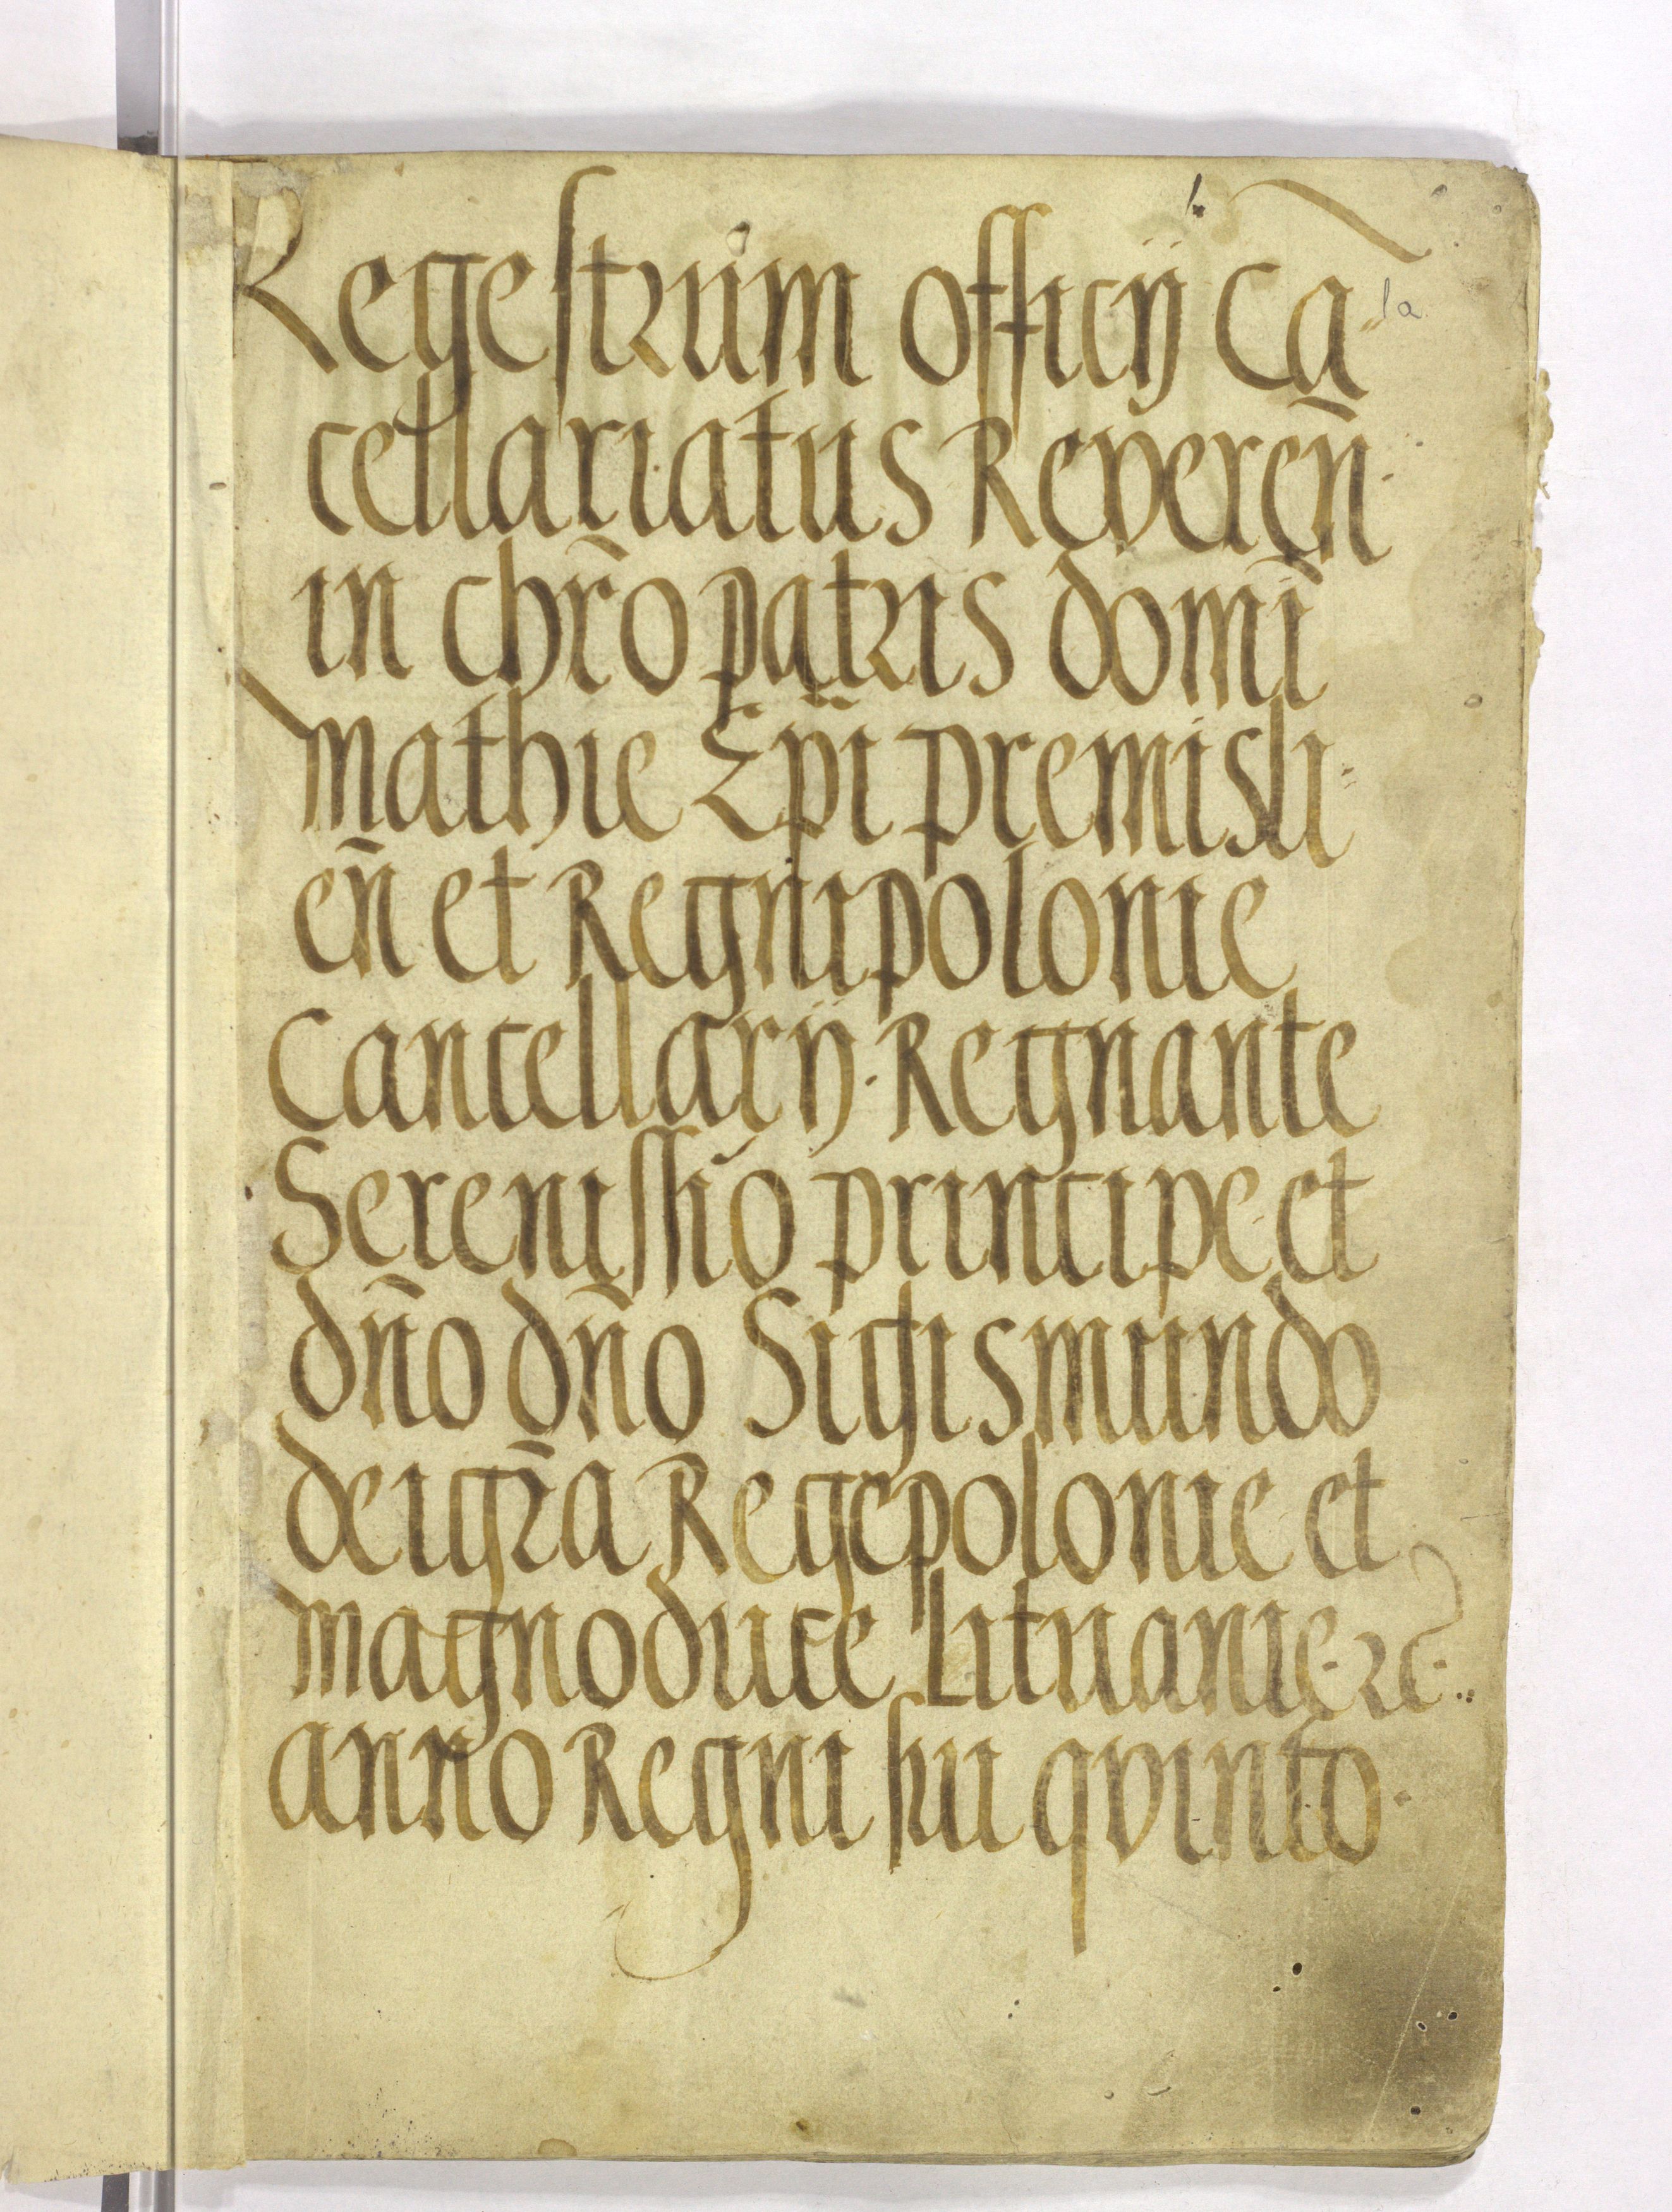 Regestrum officij Cā
cellariatus Reveren̄
in chr̄o patris domī
mathie Ep̄i premisli-
en̄ et Regni polonie
Cancellarij. Regnante
Serenissīo principe et
dn̄o dn̄o Sigismundo
dei gr̄a Rege polonie et
magno duce Lituanie ꝛc̃.
anno Regni sui qvinto.
1a